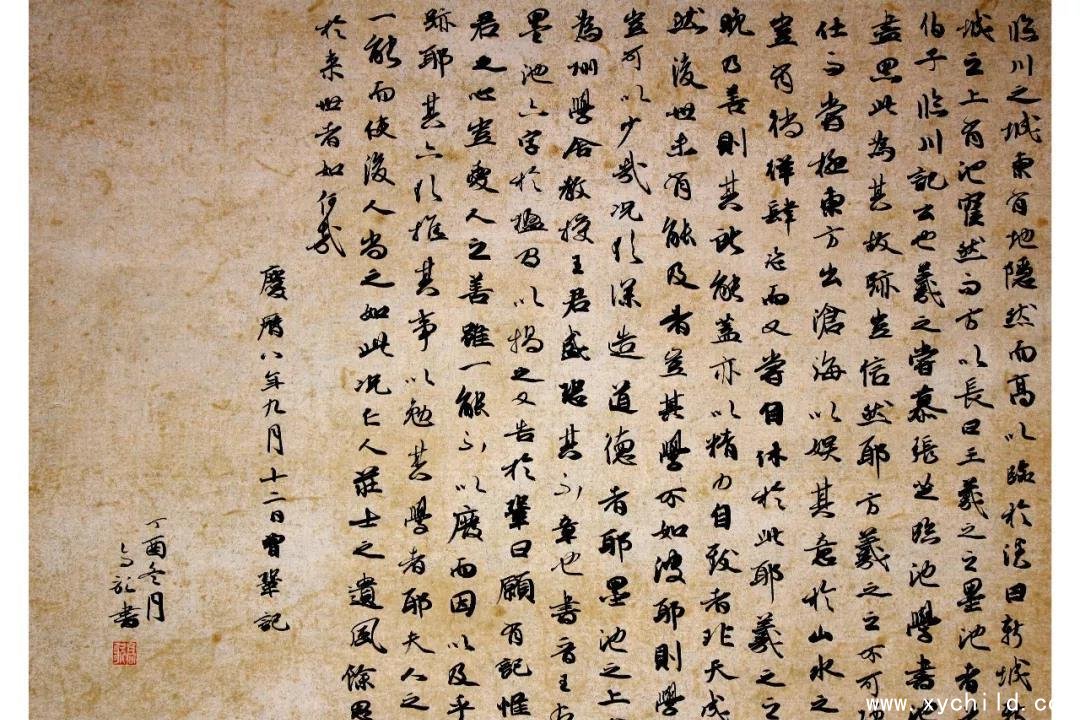 臨川之城東有地隱然而高以臨於溪曰新城
城之上有池窪然而方以長曰王羲之之墨池者
伯子臨川記云也羲之嘗慕張芝臨池學書池
盡黑此為其故跡豈信然耶方羲之之不可
仕而嘗極東方出滄海以娛其意於山水之
豈有徜徉肆恣而又嘗自休於此耶羲之之
晚乃善則其所能蓋亦以精力自致者非天成
然後世未有能及者豈其學不如彼耶則學
豈可以少哉況欲深造道德者耶墨池之上
為州學舍教授王君盛恐其不章也書晉王
墨池六字於楹間以揭之又告於鞏曰願有記惟
君之心豈愛人之善雖一能不以廢而因以及乎
跡耶其亦欲推其事以勉其學者耶夫人之
一能而使後人尚之如此況仁人莊士之遺風餘思
於來世者如何哉
慶曆八年九月十二日曾鞏記
丁酉冬月
書
www.xychild.co